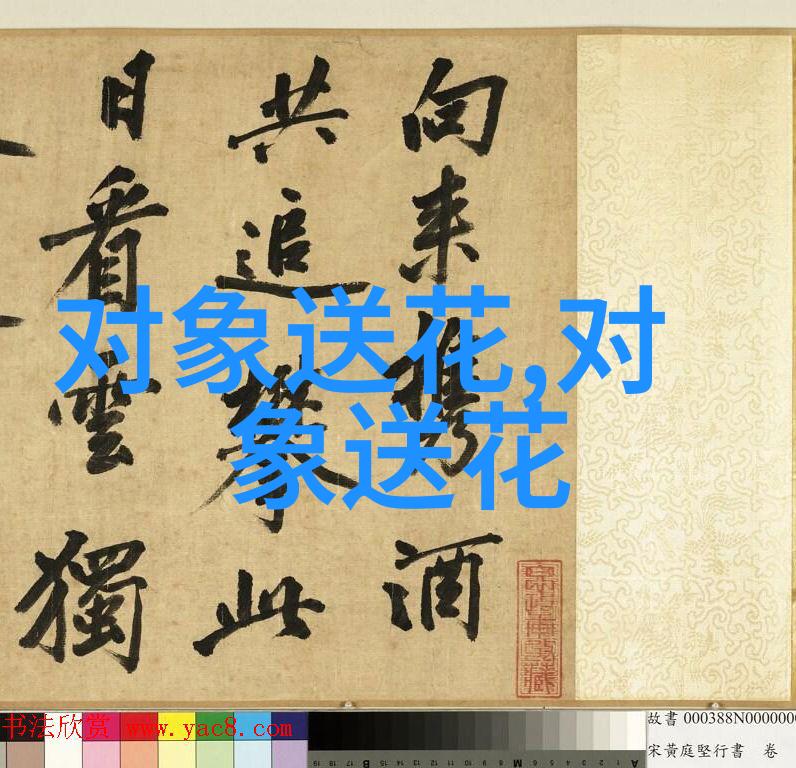 向来攜酒
共追攀此
日看雲獨
对象送花,对
象送花
书法欣赏 www.yac8.com
故書 000388N0000000
宋黃庭堅行書 卷